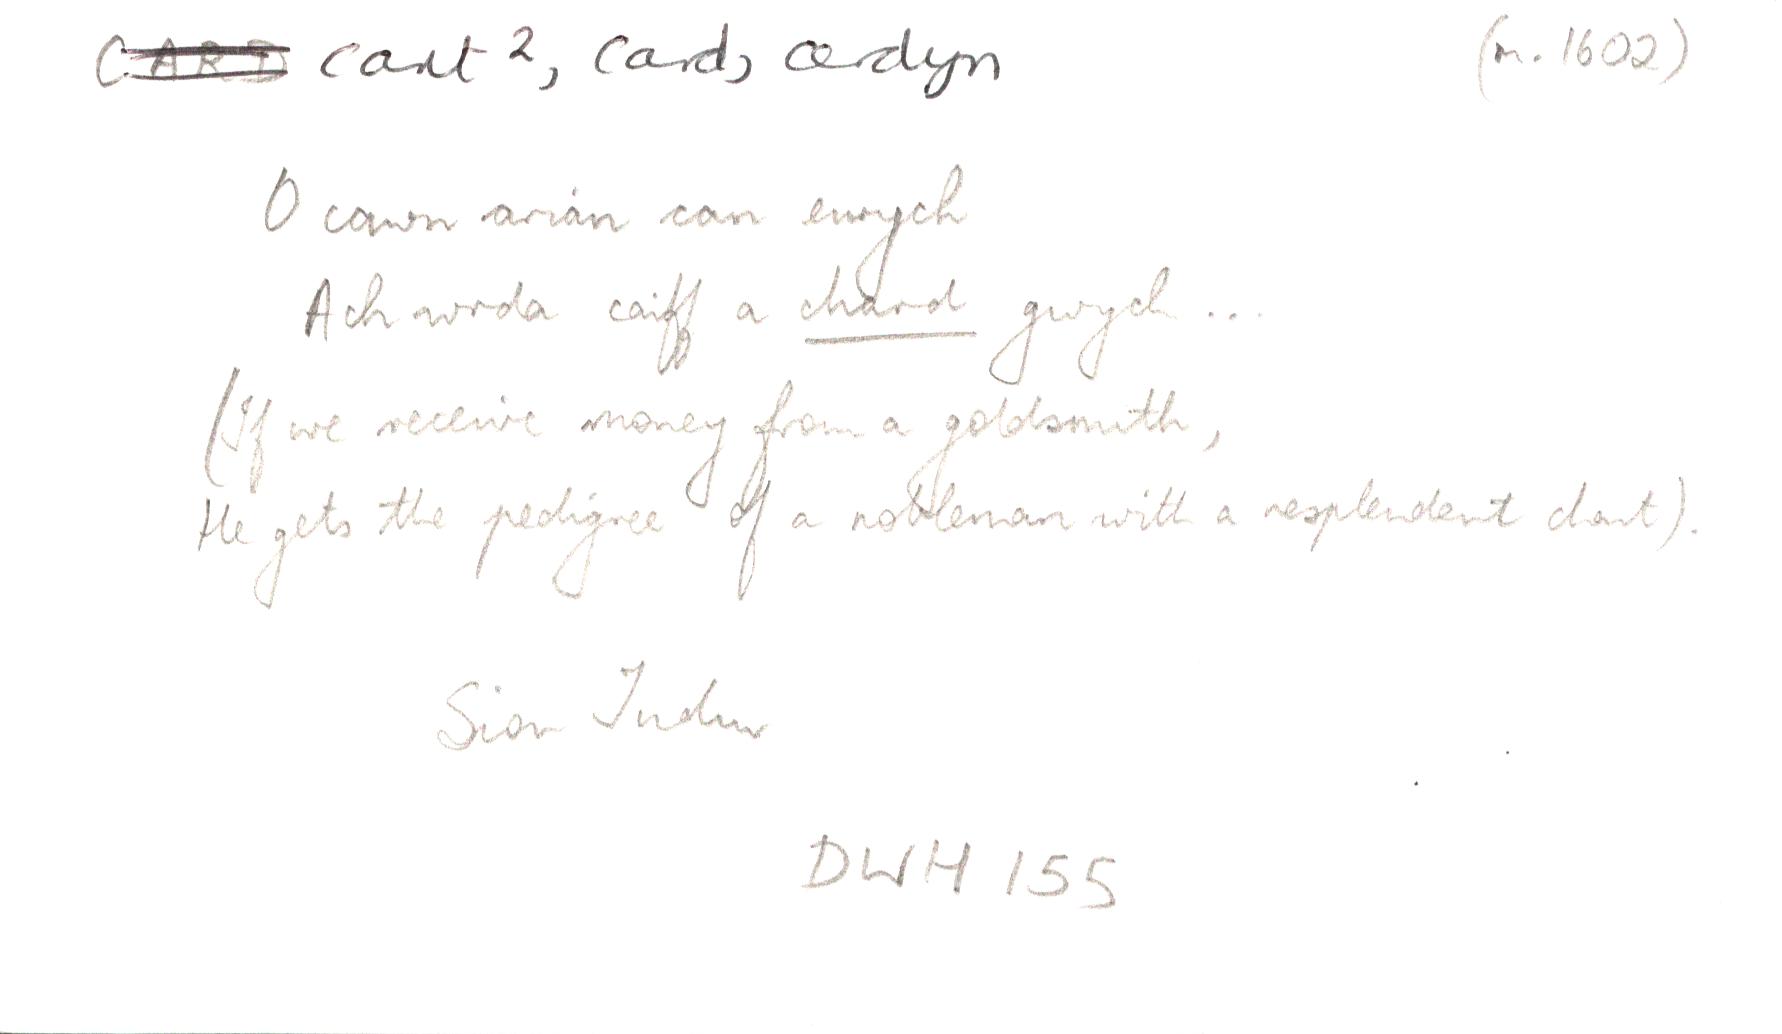 CARD cart 2, card, cerdyn (m. 1602)
O cawn arian can eurych
Ach wrda caiff a chard gwych...
(If we receive money from a goldsmith,
He gets the pedigree of a nobleman with a resplendent chart).
Sion Tudur
DWH 155